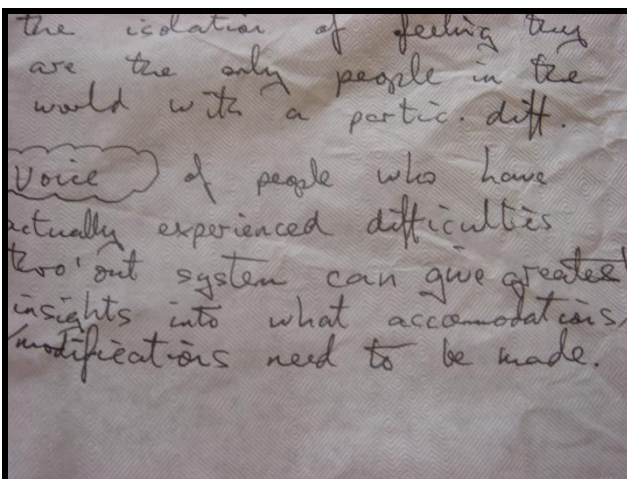 the isolation of feeling they
are the only people in the
world with a partic. diff.
Voice of people who have
actually experienced difficulties
thro' out system can give greatest
insights into what accomodations/
modifications need to be made.